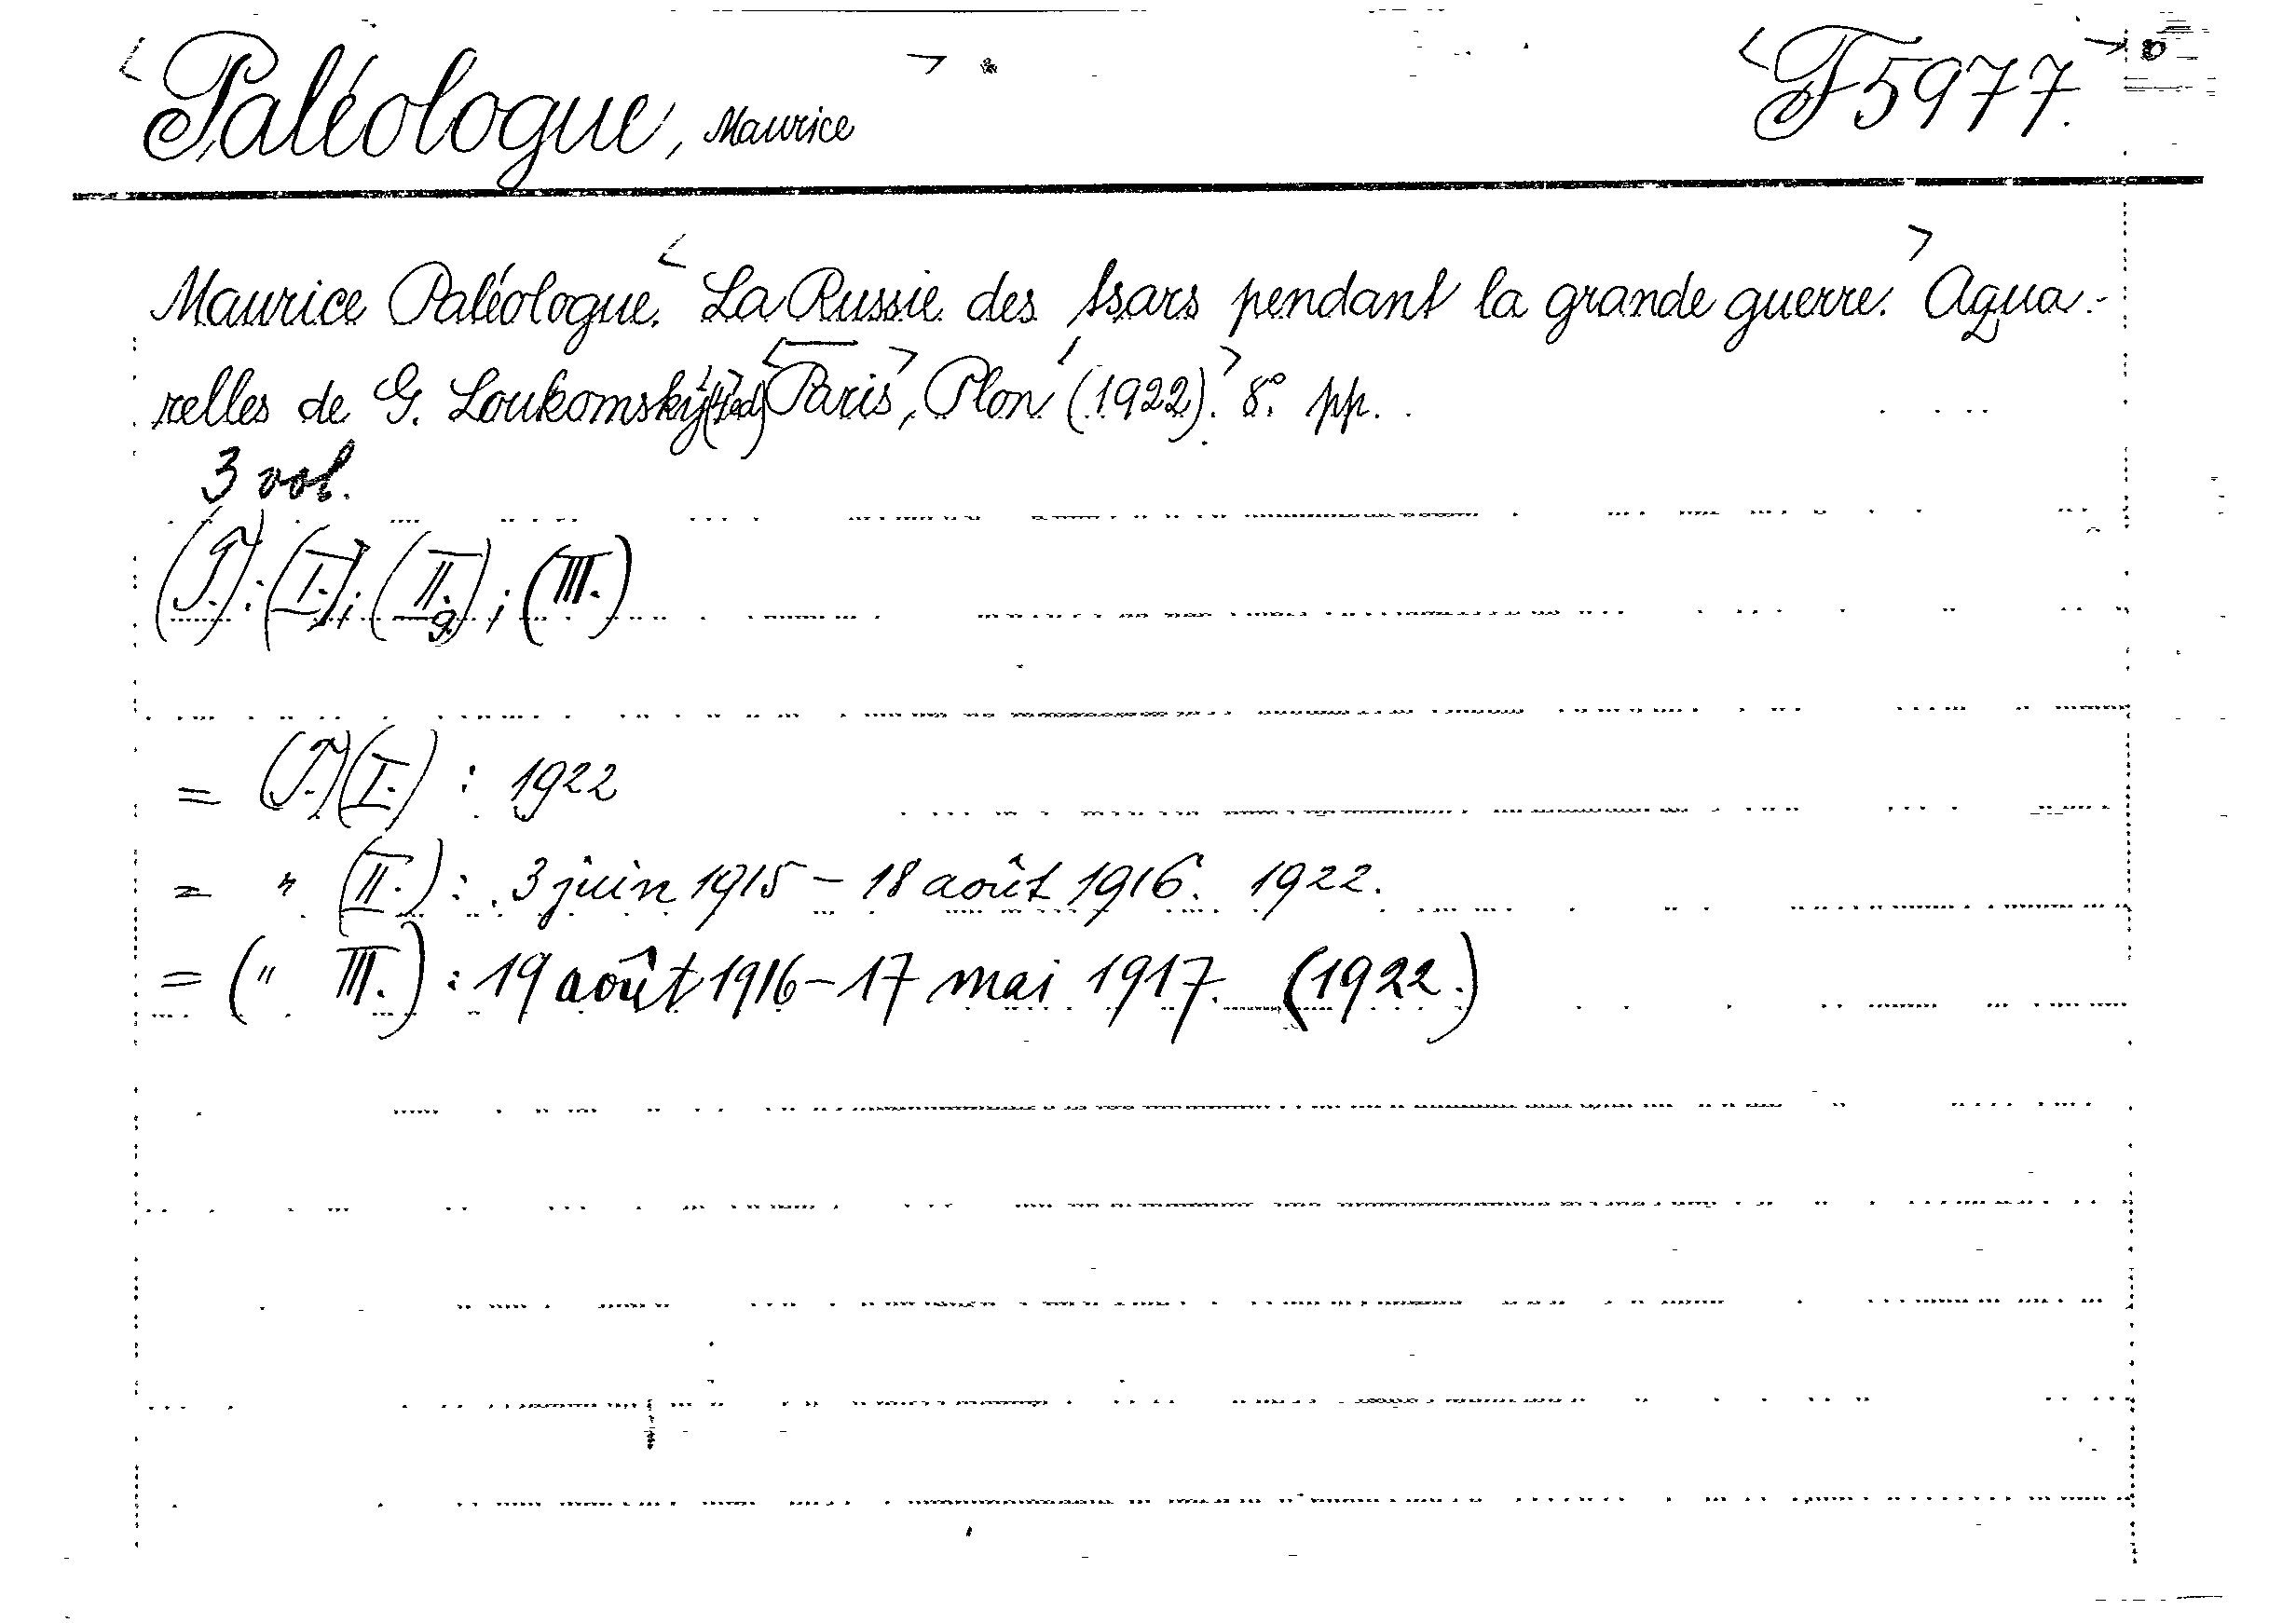 Paléologue, Maurice F 5977.
Maurice Paléologue. La Russie des tsars pendant la grande guerre. Aqua-
relles de G. Loukomsky Paris, Plon (1922). 8° pp.
3 vol.
(T.): (I.); (II.); (III.)
= (T.)(I.) : 1922
= " (II.) : 3 juin 1915 – 18 août 1916. 1922.
= (" III.) : 19 août 1916 – 17 mai 1917. (1922.)